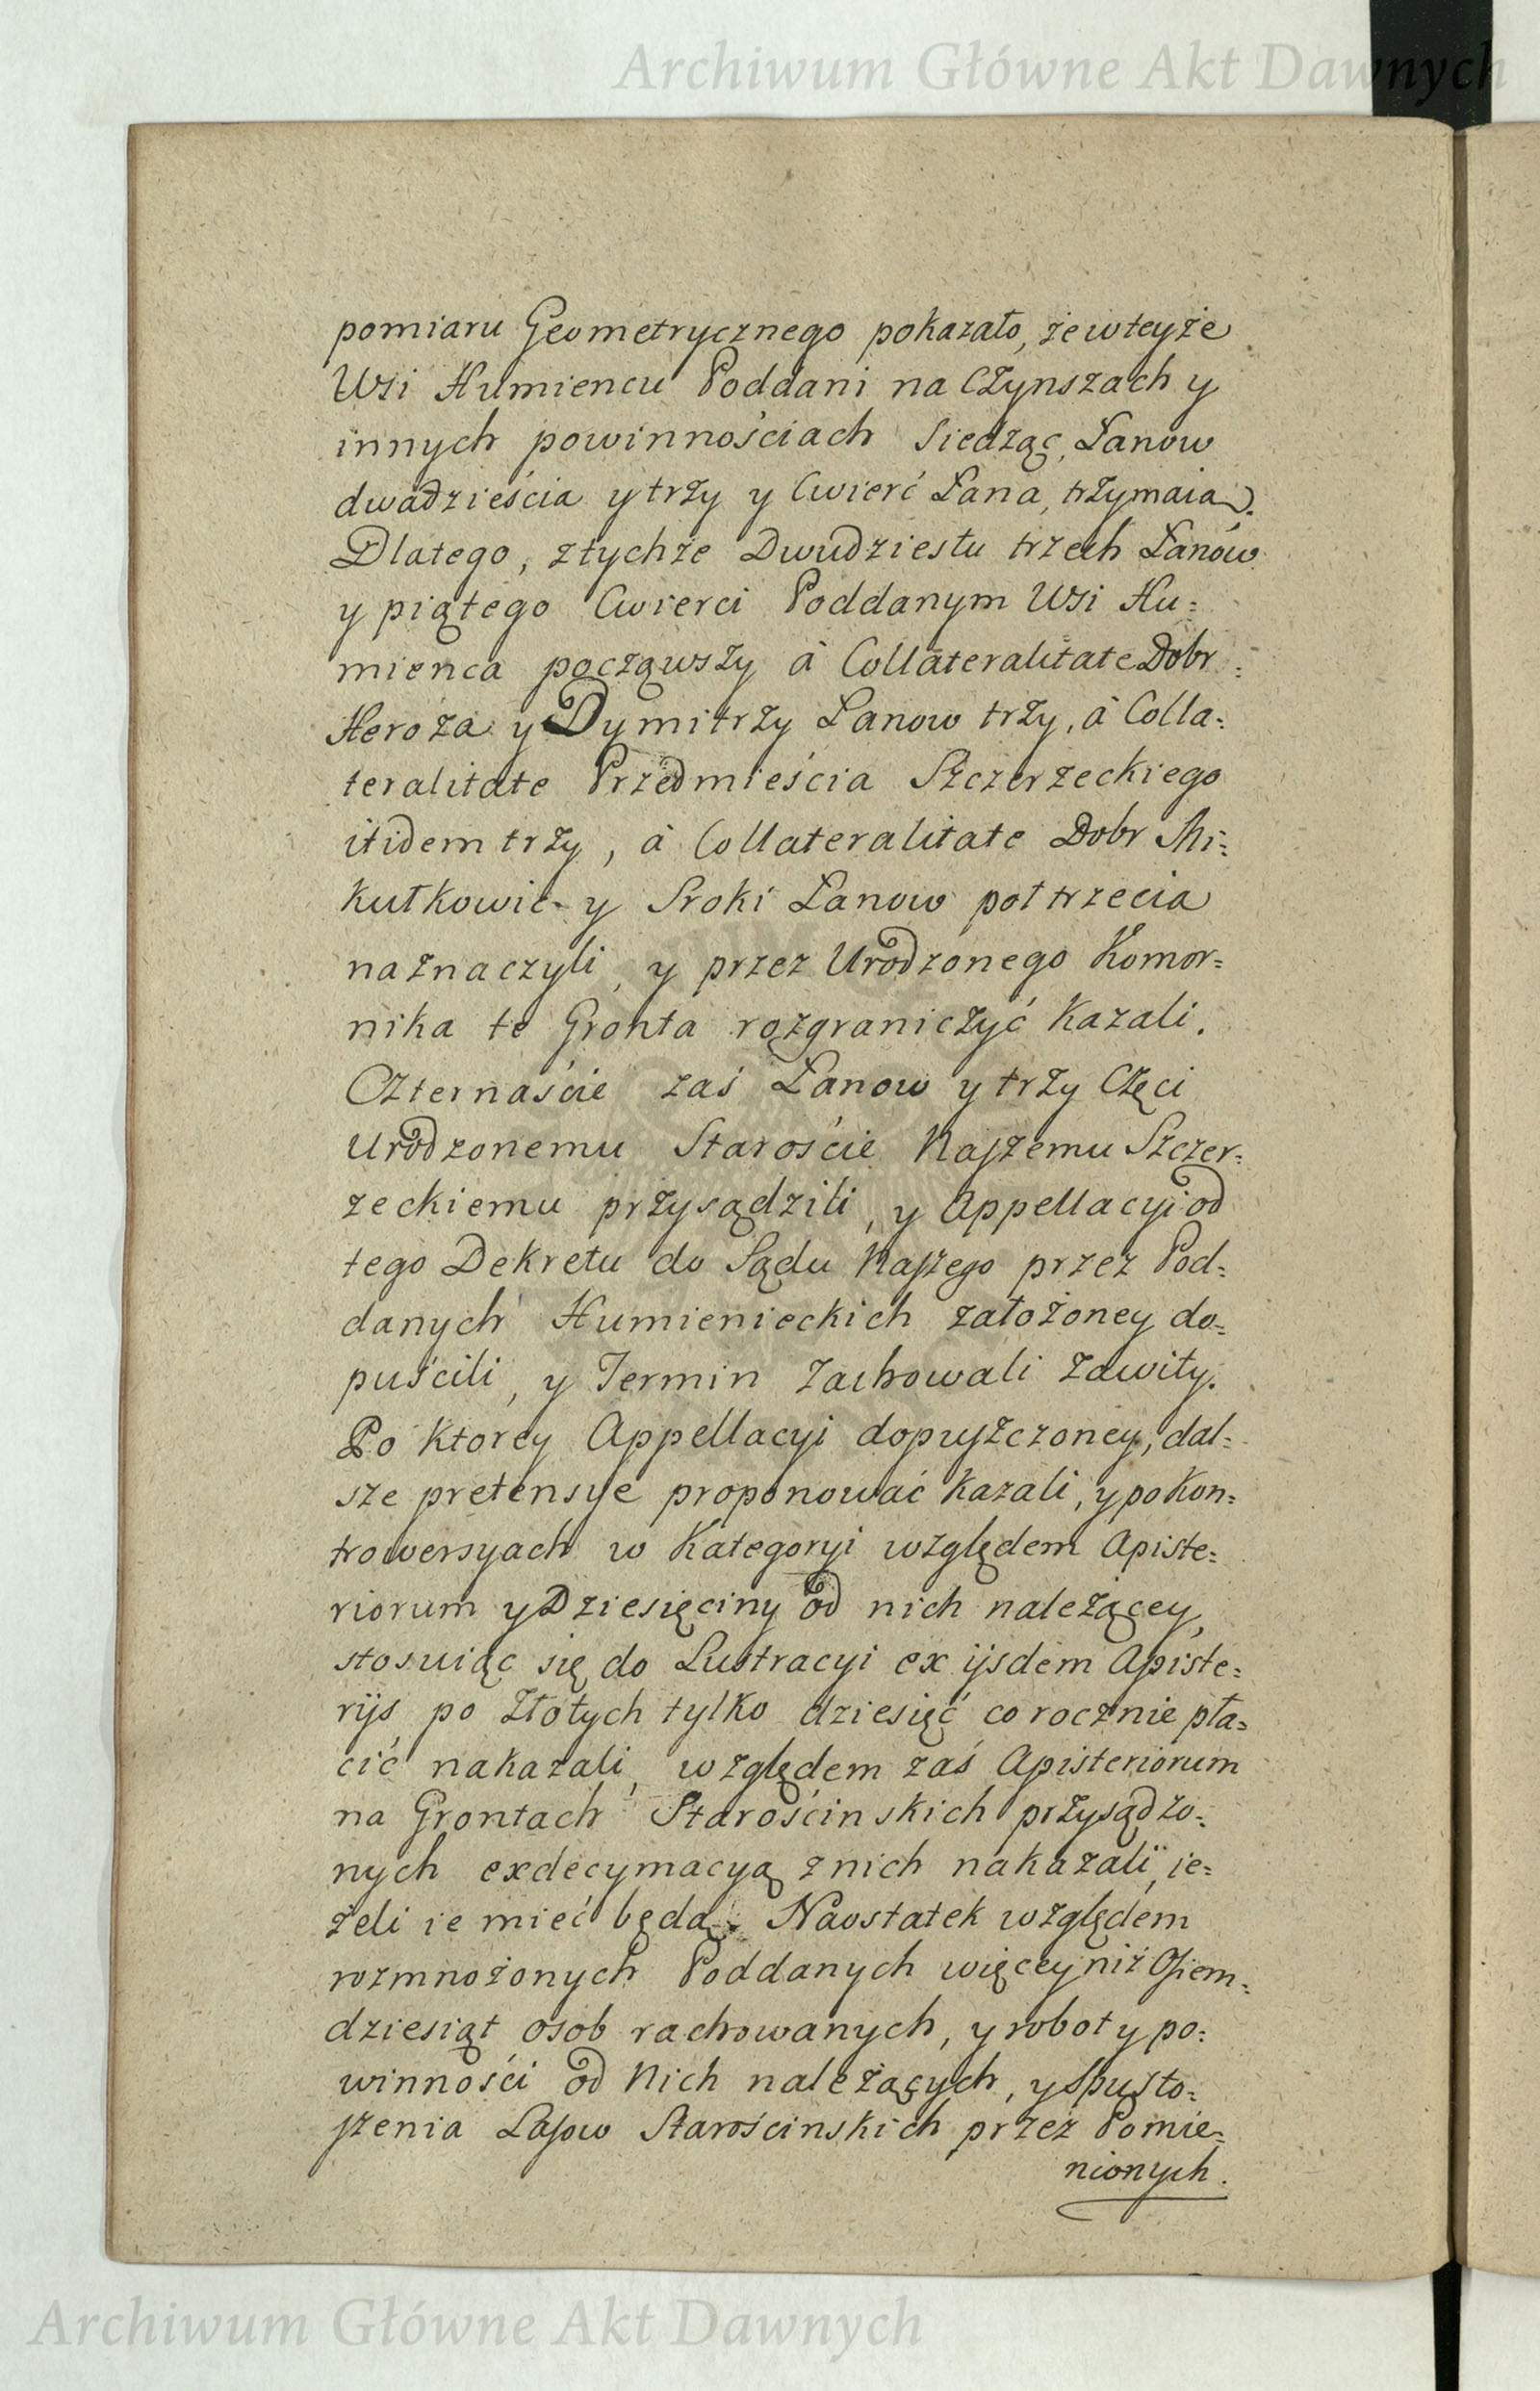 Archiwum Główne Akt Dawnych
pomiaru Geometrycznego pokazało, że w teyże
Wsi Humiencu Poddani na Czynszach y
innych powinnościach siedząc, Łanow
dwadzieścia y trzy y Cwierć Łana, trzymaia.
Dlatego, z tychże Dwudziestu trzech Łanów
y piątego Cwierci Poddanym Wsi Hu=
mienca począwszy à Collateralitate Dobr
Heroża y Dymitrzy Łanow trzy, à Colla=
teralitate Przedmieścia Szczerzeckiego
itidem trzy, à Collateralitate Dobr Mi=
kułkowic y Sroki Łanow poł trzecia
naznaczyli, y przez Urodzonego Komor=
nika te Gronta rozgraniczyć kazali.
Czternaście zaś Łanow y trzy Częci
Urodzonemu Staroście Naszemu Szczer=
zeckiemu przysądzili, y Appellacyi od
tego Dekretu do Sądu Naszego przez Pod=
danych Humienieckich założoney do=
puścili, y Termin zachowali zawity.
Po ktorey Appellacyi dopuszczoney, dal=
sze pretensye proponować kazali, y po kon=
trowersyach w Kategoryi względem Apiste=
riorum y Dziesięciny od nich należącey,
stosuiąc się do Lustracyi ex ijsdem Apiste=
rijs po złotych tylko dziesięć co rocznie pła=
cić nakazali, względem zaś Apisteriorum
na Grontach Starościnskich przysądzo=
nych exdecymacyą z nich nakazali, ie=
żeli ie mieć będą. Naostatek względem
rozmnożonych Poddanych więcey niż Osiem=
dziesiąt osob rachowanych, y roboty po=
winności od Nich należących, y spusto=
szenia Lasow Starościnskich przez Pomie=
nionych.
Archiwum Główne Akt Dawnych